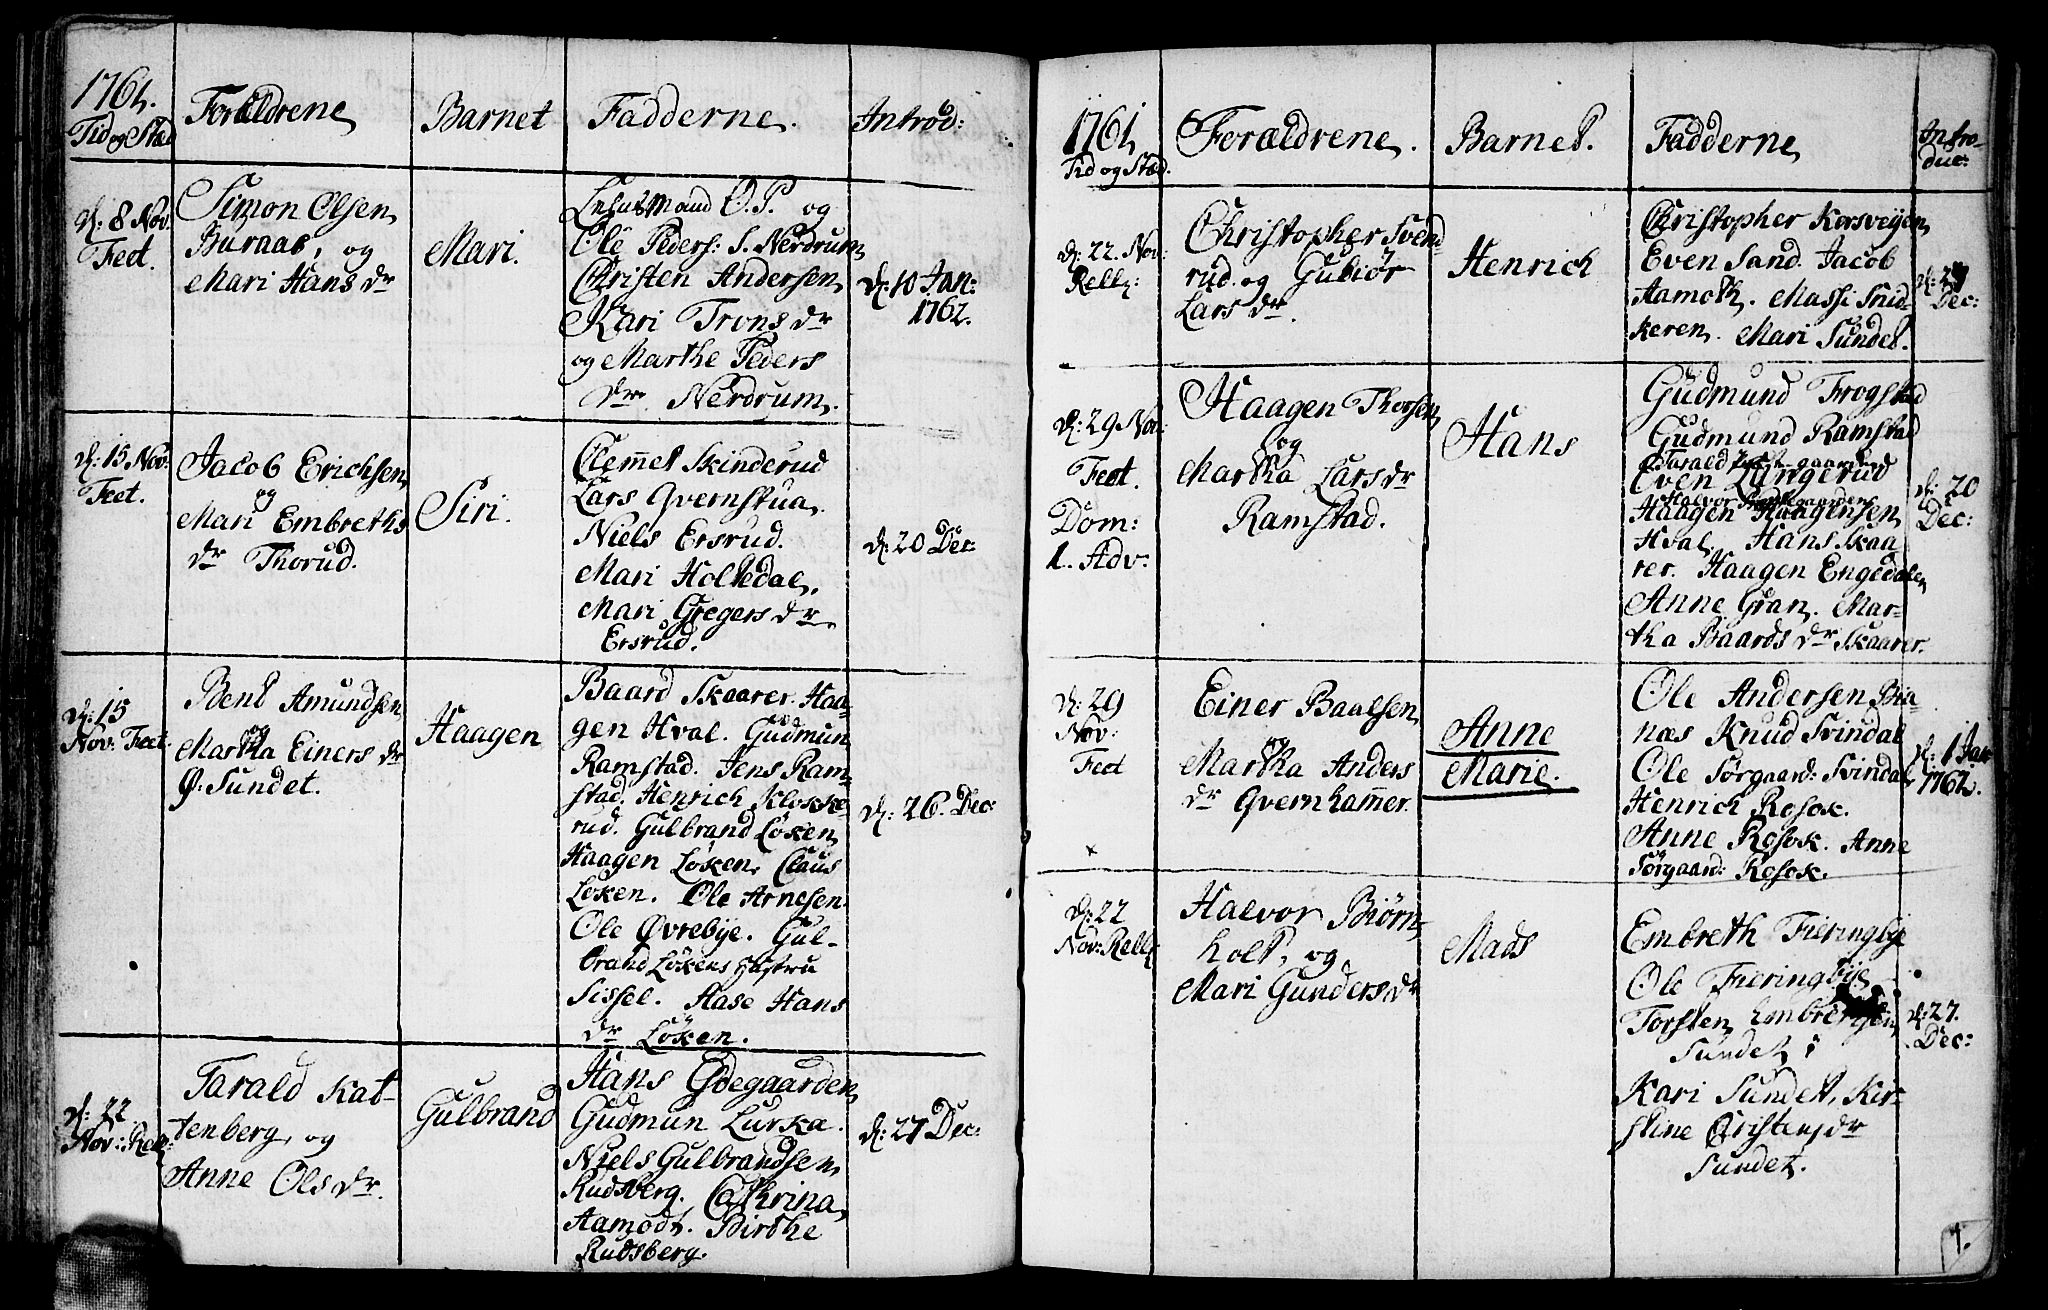 1761.
Tid og Stæd
Forældrene
Barnet
Fadderne.
Introd:
d: 8 Nov.
Feet.
Simon Olsen
Buraas, og
Mari Hans dr
Mari.
Lensmand O.P. og
Ole Peders: S. Nerdrum
Christen Andersen
Kari Trons dr
og Marthe Peders
dr Nerdrum.
d: 10 Jan:
1762.
d: 15 Nov:
Feet.
Jacob Erichsen
og
Mari Embreths
dr Thorud.
Siri.
Clemmet Skinderud
Lars Qvernstua.
Niels Ersrud.
Mari Holtedal.
Mari Gregers dr
Ersrud.
d: 20 Dec:
d: 15
Nov: Feet.
Bent Amundsen
og
Martha Einers dr
Ø: Sundet.
Haagen
Baard Skaarer. Haa-
gen Hval. Gudmun
Ramstad. Jens Ram-
stad. Henrich Klokke-
rud. Gulbrand Løken
Haagen Løken, Claus
Løken. Ole Arnesen
Ole Øvrebye. Gul-
brand Løkens Hustru
Sissel. Aase Hans
dr Løken.
d: 26. Dec:
d: 22
Nov: Rell:
Tarald Kat-
tenberg, og
Anne Ols dr.
Gulbrand
Hans Ødegaarden
Gudmun Lurka.
Niels Gulbrandsen
Rudsberg. Cathrina
Aamodt. Birthe
Rudsberg.
d: 27 Dec:
1761
Tid og Stæd.
Forældrene.
Barnet.
Fadderne
Intro-
duc:
d: 22. Nov:
Rell:
Christopher Svend-
rud. og Gubiør
Lars dr.
Henrich
Christopher Korsveyen
Even Sand. Jacob
Aamoth. Massi Snid-
keren. Mari Sundet.
d: 27
Dec:
d: 29 Nov:
Feet.
Dom:
1. Adv:
Haagen Thorsen
og
Martha Lars dr
Ramstad.
Hans
Gudmund Frogstad
Gudmund Ramstad
Tarald
Even Lungerud
Halvor
Haagen Haagensen
Hval, Hans Skaa
rer. Haagen Engedalen
Anne Gran. Mar-
tha Baards dr Skaarer.
d: 20
Dec:
d: 29
Nov:
Feet
Einer Baalsen
og
Martha Anders
dr Qvernhammer.
Anne
Marie.
Ole Andersen Bia-
næs Knud Svindal
Ole Sørgaard: Svindal
Henrich Rosok.
Anne Rosok. Anne
Sørgaard: Rosok.
d: 1 Jan
1762.
d: 22
Nov: Rell:
Halvor Biørn-
holt, og
Mari Gunders dr
Mads
Embreth Fieringbye
Ole Fieringbye
Torsten Embretsen
Sundet i
Kari Sundet, Kir-
stine Christens dr
Sundet.
d: 27.
Dec: